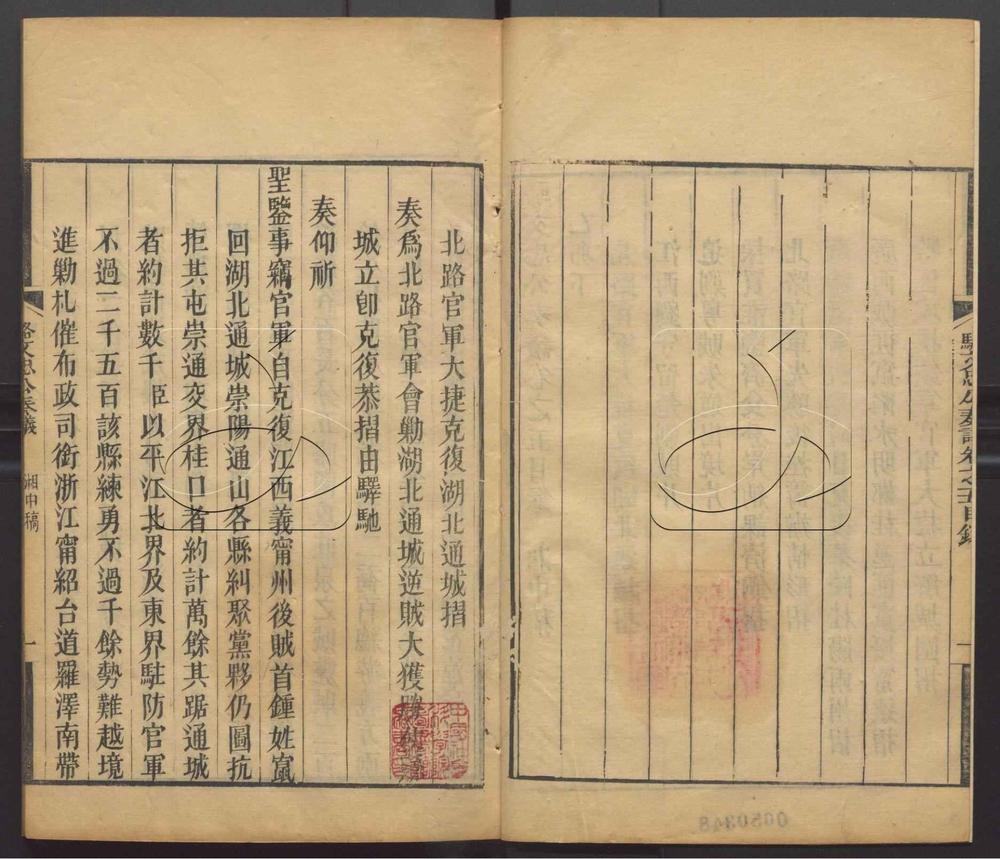 駱文忠公奏議卷之五目錄
一
北路官軍大捷克復湖北通城摺
奏為北路官軍會勦湖北通城逆賊大獲勝仗
城立卽克復恭摺由驛馳
奏仰祈
聖鑒事竊官軍自克復江西義甯州後賊首鍾姓竄
回湖北通城崇陽通山各縣糾聚黨夥仍圖抗
拒其屯崇通交界桂口者約計萬餘其踞通城
者約計數千臣以平江北界及東界駐防官軍
不過二千五百該縣練勇不過千餘勢難越境
進勦札催布政司銜浙江甯紹台道羅澤南帶
駱文忠公奏議
湘中稿
一
0050348